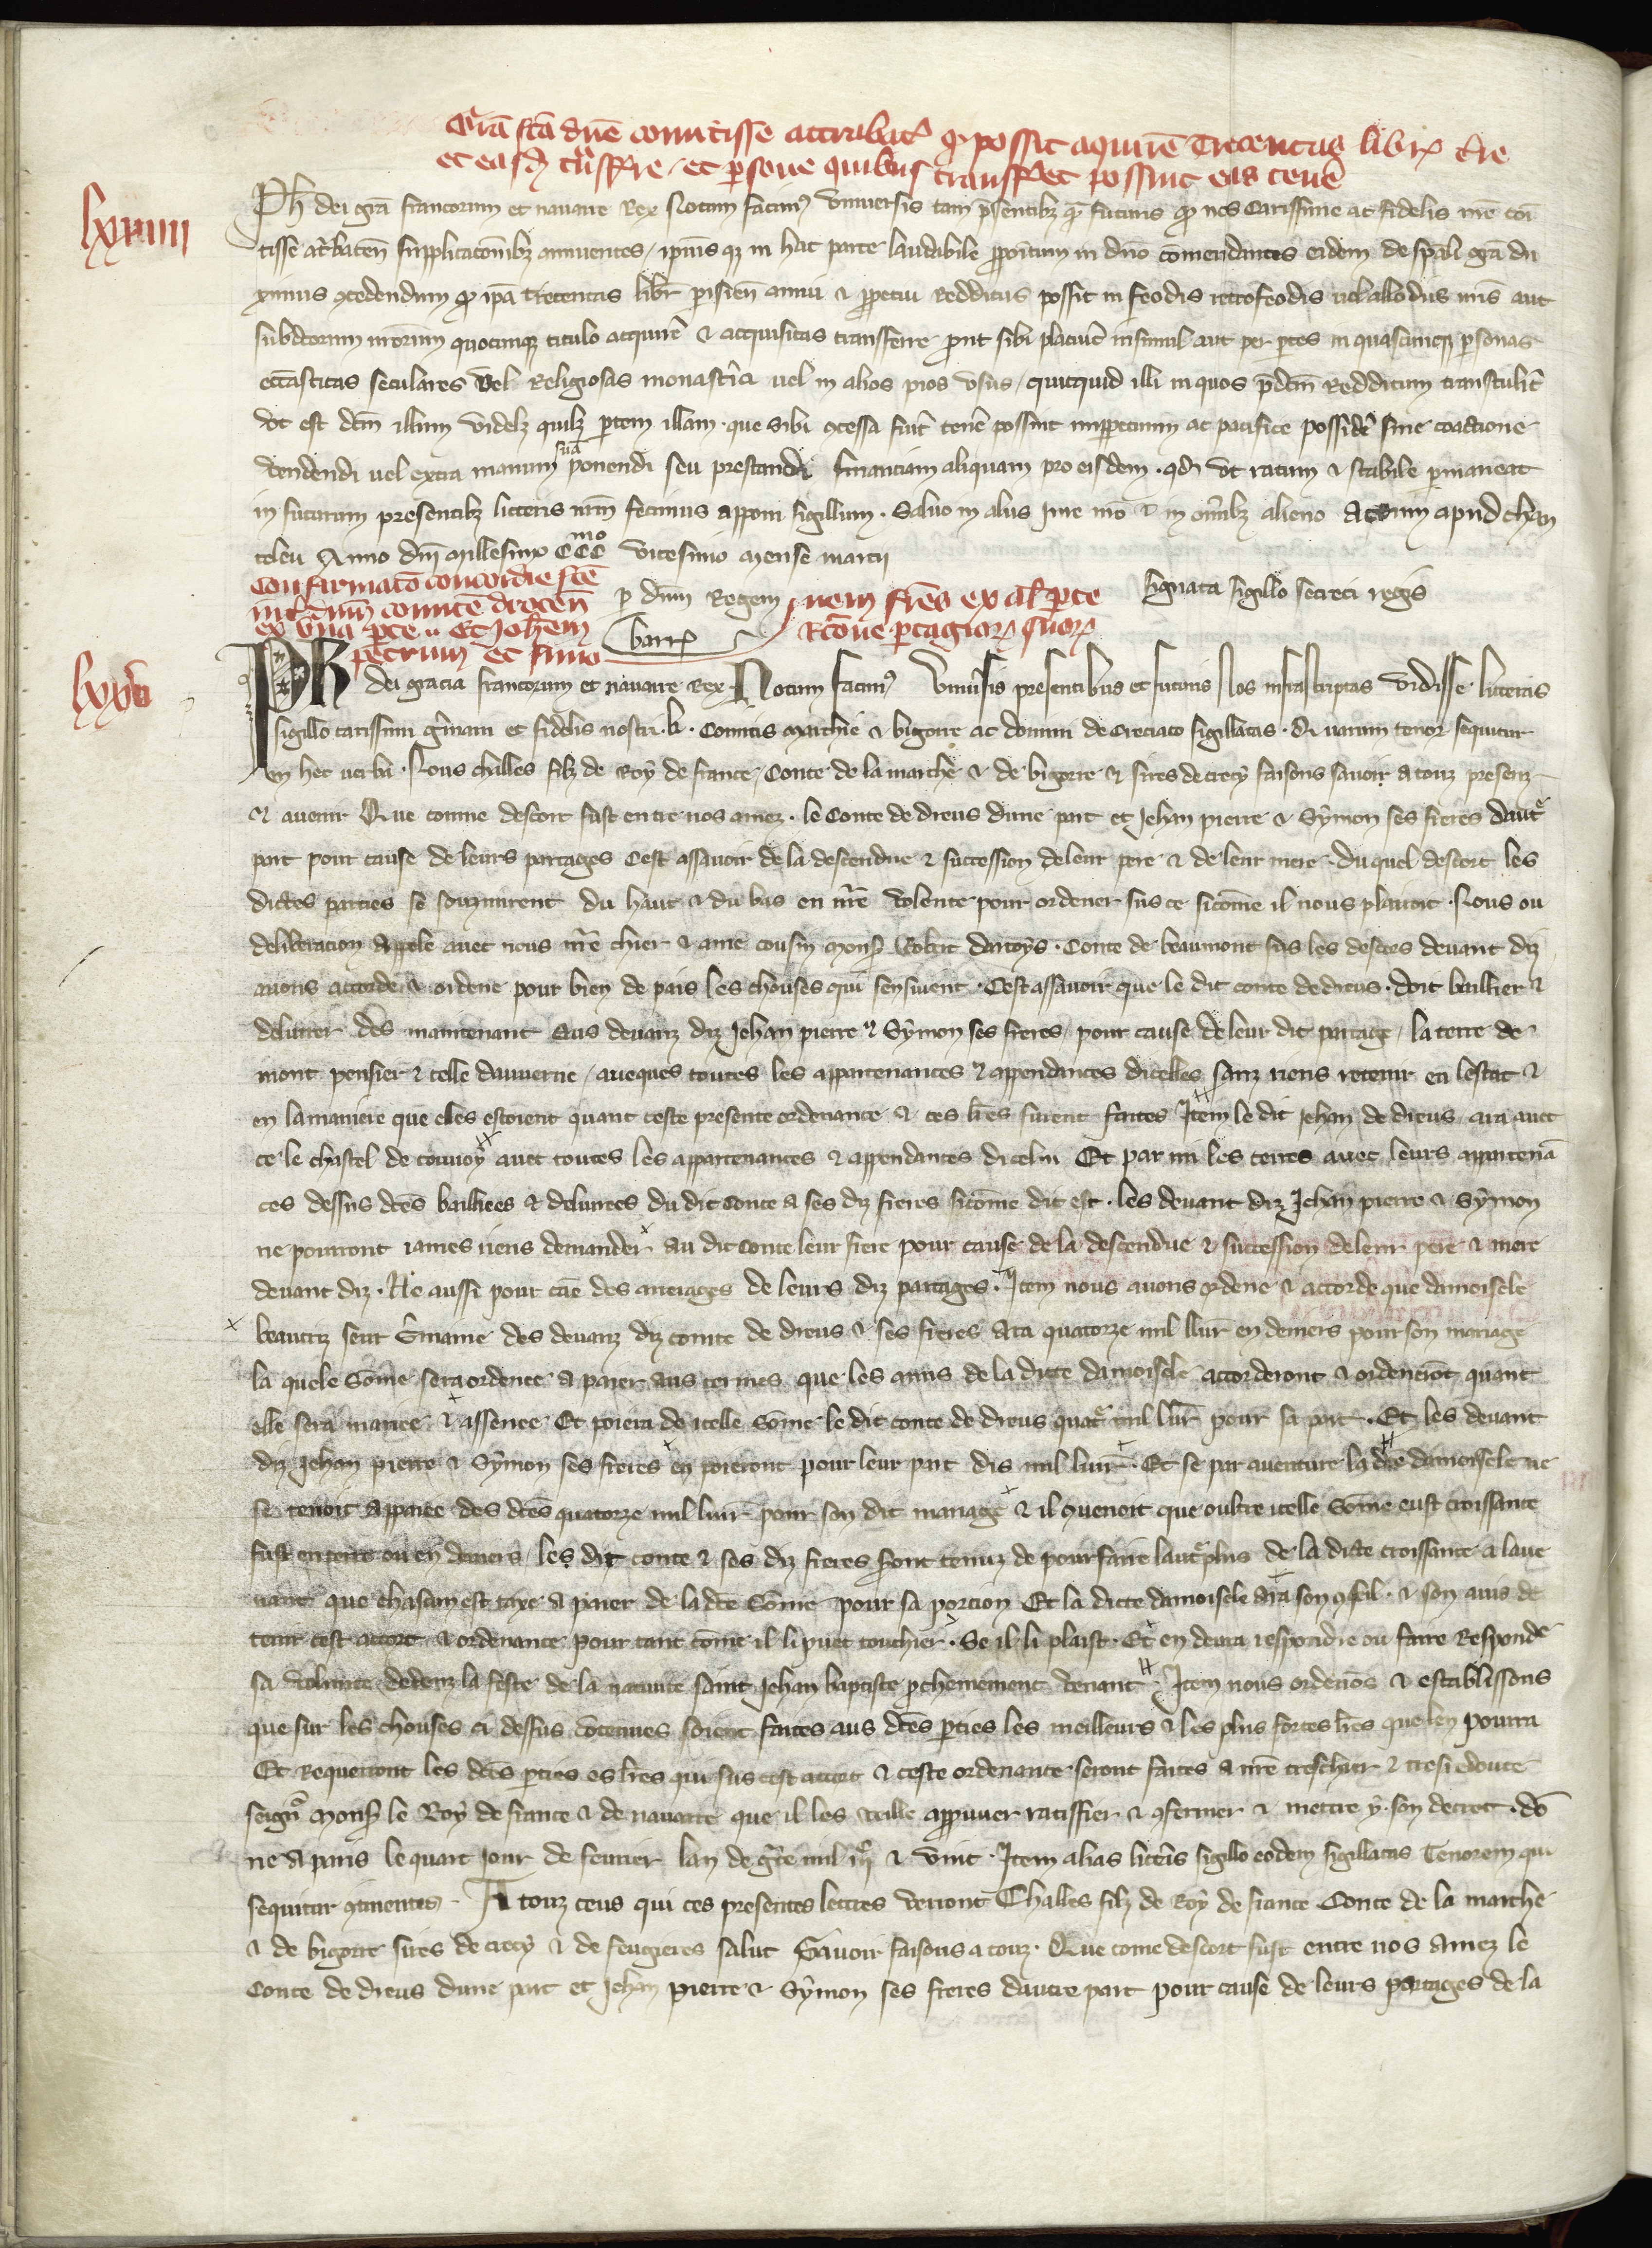 Grā fcā dn̄e comitisse attrabat̄ q̄ possit aquirē trecentas libr̄ t̄re
et easd̄ t̄nsfr̄re / et persone quibus transf̄et possint eas tenē
lxxiiii
Ph̄ dei gr̄a francorum et nauarre Rex Notum facim⁹ vniuersis tam p̄sentibꝫ q̄ futuris q̄ nos Carissime ac fidelis nr̄e com̄
tisse at̄rbaten̄ supplicacōnibꝫ annuentes / ipius qꝫ in hac parte laudabile p̄ositum in dn̄o cōmendantes eidem de sp̄ali gr̄a du
ximus ꝯcedendum q̄ ip̄a trecentas libr̄ parisien̄ annui & perpetui Redditus possit in feodis retrofeodis uel allodiis nr̄is aut
subditorum nr̄orum quocumqꝫ titulo acquirē & acquisitas transferre prout sibi placuer̄ insimul aut per partes in quascumqꝫ personas
ecc̄asticas seculares vel Religiosas monastīa uel in alios pios vsus / quicquid illi in quos p̄dcm̄ Redditum transtulit̄
vt est dcm̄ illum videlꝫ quilꝫ partem illam . que sibi ꝯcessa fuit̄ tenē possint imperpetuum ac pacifice possidē sine coactione
vendendi uel extra manum suā ponendi seu prestandi financiam aliquam pro eisdem . qd̄ vt ratum & stabile permaneat
in futurum presentibꝫ litteris nr̄m fecimus apponi sigillum . Saluo in aliis iure nr̄o & in om̄ibꝫ alieno Actum apud chan
teleu Anno dn̄i millesimo CCC mo vicesimo mense marcii
per dn̄m Regem
barr̄
signata sigillo secreti regis
Confirmacō concordie fc̄e
int̄ dn̄m comitē drocen̄
ex vna parte .. Et Joh̄em
petrum et simo
nem fr̄es ex al̄ parte
Rac̄one partagior̄ suor̄
lxxv
Ph dei gracia francorum et nauarre Rex Notum facim⁹ vniu̅sis presentibus et futuris Nos infrascriptas vidisse litteras
sigillo carissimi gr̄mani et fidelis nostri . k . Comitis Marchie & bigorre ac domini de Creciaco sigillatas . Quarum tenor sequitur
in hec verba . Nous challes filz de Roy de france / Conte de la marche & de bigorre & sires de crecy faisons sauoir a touz presenz
& auenir Que comme descort fust entre nos amez . le Conte de dreus dune part et Jehan pierre & Symon ses freres dautr̄
part pour cause de leurs partages Cest assauoir de la descendue & succession de leur pere & de leur mere . du quel descort les
dictes parties se souzmirent du haut & du bas en nr̄e volente pour ordener sus ce sicōme il nous plairoit . Nous ou
deliberacion appele auec nous nr̄e chier & ame cousin mons̄ Robert dartoys . Conte de beaumont sus les descors deuant diz
auons accorde & ordene pour bien de pais les chouses qui sensiuent . Cest assauoir que le dit conte de dreus . doit baillier &
deliurer des maintenant Aus deuanz diz Jehan pierre & Symon ses freres / pour cause de leur dit partage / la terre de
mont pensier & celle dauuerne / auecques toutes les appartenances & appendances dicelles sanz riens retenir en lestat &
en la maniere que elles estoient quant ceste presente ordenance & ces lr̄es furent faites Item le dit Jehan de dreus / ara auec
ce le chastel de couuoy auec toutes les appartenances & appendances dicelui Et par mi les terres auec leurs appartenā
ces dessus dc̄es baillees & deliurees du dit Conte a ses diz freres sicōme dit est . les deuant diz Jehan pierre & Symon
ne pourront iames riens demander au dit Conte leur frere pour cause de la descendue & succession de leur pere & mere
deuant diz . Ne aussi pour cāe des arrerages de leurs diz partages . Item nous auons ordene & accorde que damoisele
beautriz seur Gr̄maine des deuanz diz comte de dreus & ses freres Ara quatorze mil liur̄ en deniers pour son mariage
la quele sōme sera ordenee a paier aus termes que les amis de la dicte damoisele accorderont & ordenerōt quant
elle sera mariee & assenee Et poiera de icelle sōme le dit conte de dreus quatr̄ mil liur̄ pour sa part . Et les deuant
diz Jehan pierre & Symon ses freres en poieront pour leur part dis mil liur̄ . Et se par auenture la dc̄e damoisele ne
se tenoit appaiee des dc̄es quatorze mil liur̄ pour son dit mariage & il ꝯuenoit que oultre icelle sōme eust croissance
fust en terre ou en deniers / les dit conte & ses diz freres seront tenuz de pourfaire lautr̄ plus de la dicte croissance a laue
nant que chascun est taxe a paier de la dc̄e sōme pour sa porcion Et la dicte damoisele ara son ꝯseil . & son auis de
tenir cest accort & ordenance pour tant cōme il li puet touchier . Se il li plaist . Et en deura respondre ou faire Respondr̄
sa volunte dedenz la feste de la natiuite saint Jehan baptiste prochenement venant . Item nous ordenōs & establissons
que sur les chouses ci dessus ꝯtenues soient faites aus dc̄es parties les meilleurs & les plus fortes lr̄es que len pourra
Et Requerront les dc̄es parties es lr̄es qui sus cest accort & ceste ordenance seront faites a nr̄e treschier & tresredoute
seignr̄ mons̄ le Roy de france & de nauarre que il les veille approuuer ratiffier & ꝯfermer & mettre y son decret . dō
ne a paris le quart Jour de feurier lan de gr̄ce mil iijᶜ & vint . Item alias litterās sigillo eodem sigillatas Tenorem qui
sequitur ꝯtinentes . A touz ceus qui ces presentes lettres verront Challes filz de Roy de france Conte de la marche
& de bigorre sires de crecy & de feugieres salut Sauoir faisons a touz . Que come descort fust entre nos amez le
Conte de dreus dune part et Jehan pierre & Symon ses freres dautre part pour cause de leurs partages de la